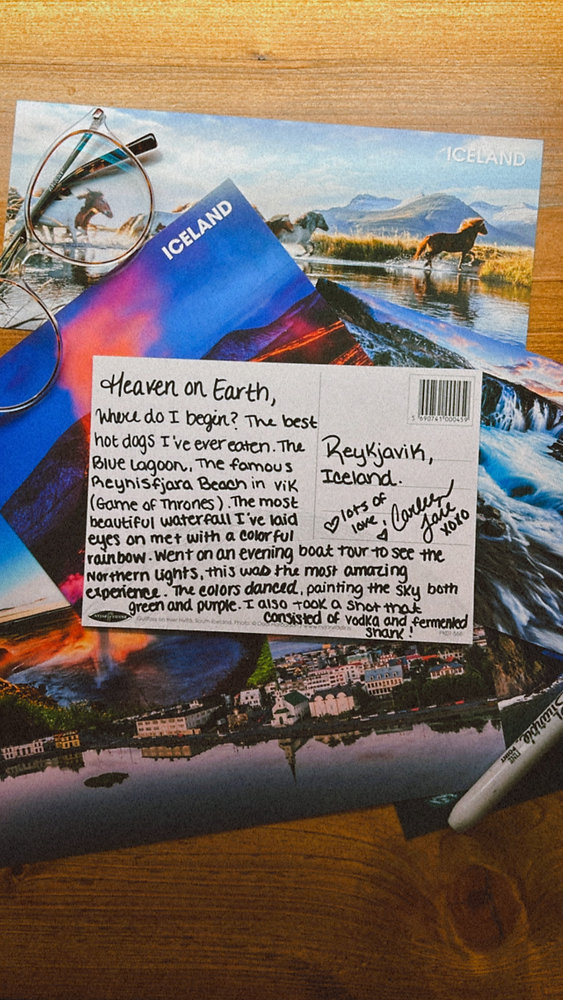 ICELAND
ICELAND
Heaven on Earth,
Where do I begin? The best
hot dogs I've ever eaten. The
Blue Lagoon, The famous
Reynisfjara Beach in Vik
(Game of Thrones). The most
beautiful waterfall I've laid
eyes on met with a colorful
rainbow. Went on an evening boat tour to see the
Northern Lights, this was the most amazing
experience. The colors danced, painting the sky both
green and purple. I also took a shot that
consisted of vodka and fermented
shark!
5 690741 000459
Reykjavik,
Iceland.
lots of
love,
Carleen
Jane
xoxo
Gullfoss on river Hvítá, South Iceland. Photo: ©
Sharpie
FINE
POINT